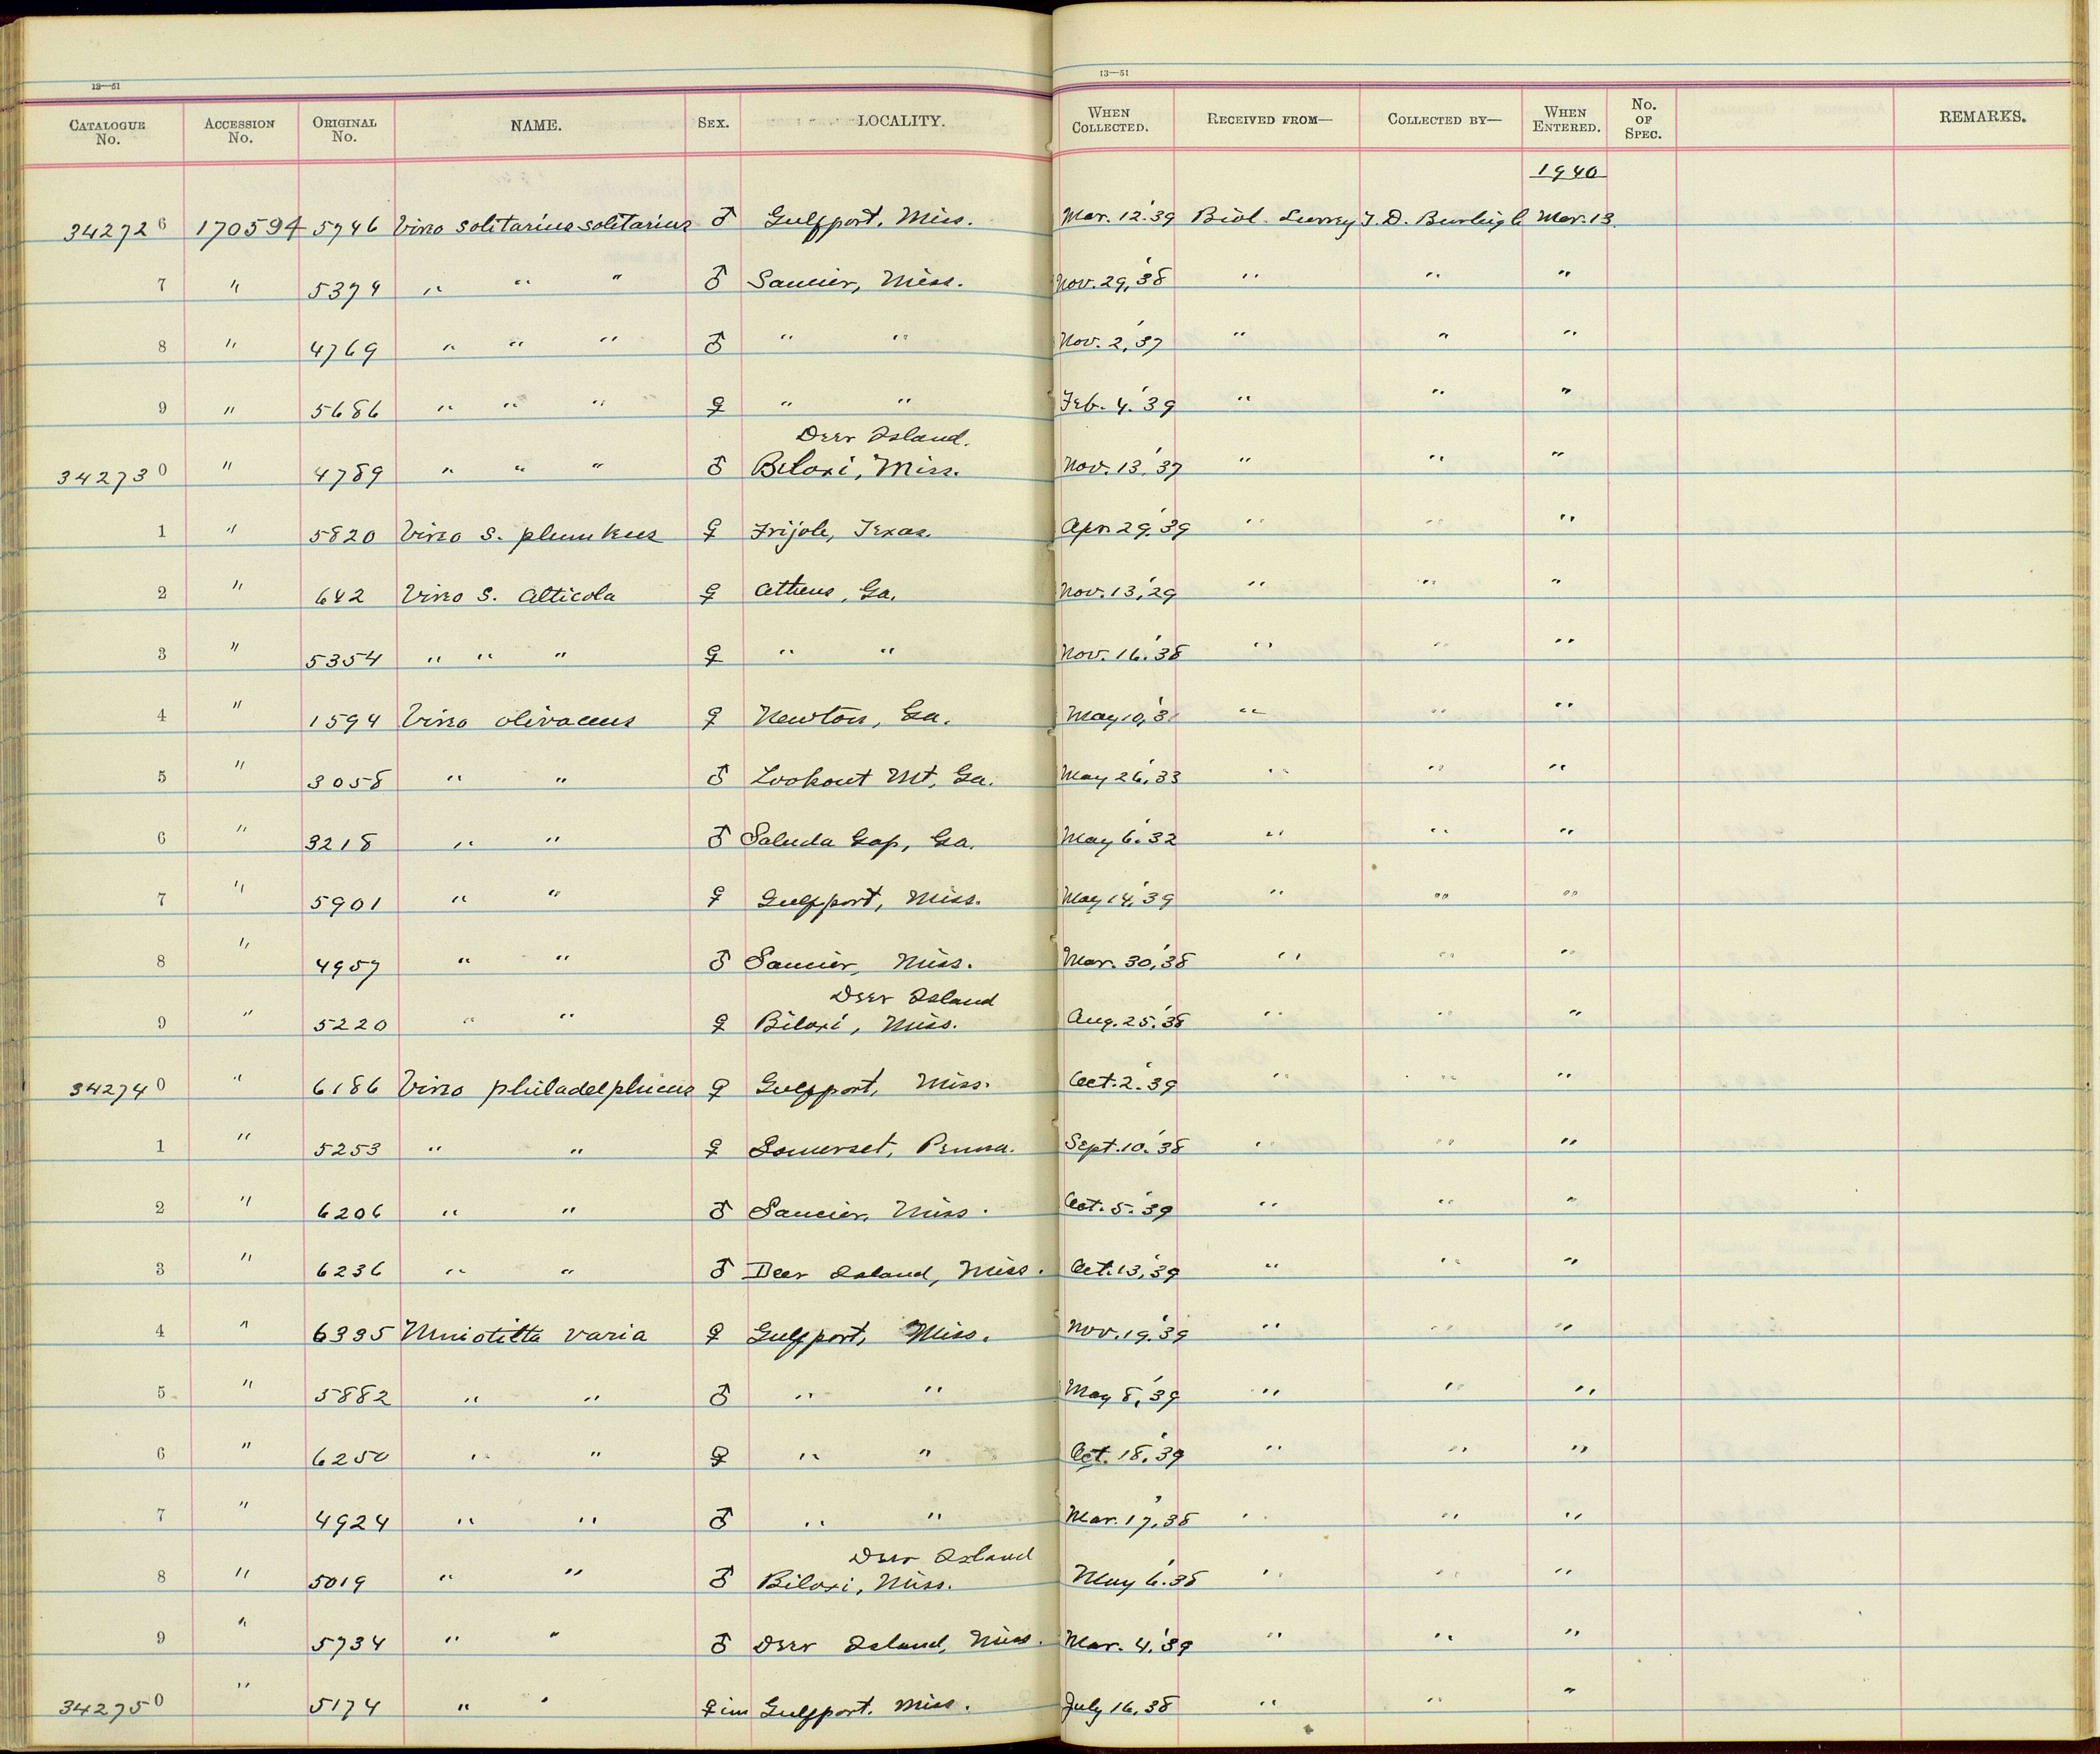 13—51 13—51
CATALOGUE No. ACCESSION No. ORIGINAL No. NAME. SEX. LOCALITY. WHEN COLLECTED. RECEIVED FROM— COLLECTED BY— WHEN ENTERED. No. OF SPEC. REMARKS.
1940
342726 170594 5746 Vireo solitarius solitarius ♂ Gulfport, Miss. Mar. 12.'39 Biol. Survey T. D. Burleigh Mar. 13.
7 " 5374 " " " ♂ Saucier, Miss. Nov. 29,'38 " " "
8 " 4769 " " " ♂ " " Nov. 2,'37 " " "
9 " 5686 " " " ♀ " " Feb. 4.'39 " " "
Deer Island.
342730 " 4789 " " " ♂ Biloxi, Miss. Nov. 13,'37 " " "
1 " 5820 Vireo S. plumbeus ♀ Frijole, Texas. Apr. 29.'39 " " "
2 " 642 Vireo S. alticola ♀ Athens, Ga. Nov. 13,'29 " " "
3 " 5354 " " " ♀ " " Nov. 16.'38 " " "
4 " 1594 Vireo olivaceus ♀ Newton, Ga. May 10,'3 " " "
5 " 3058 " " ♂ Lookout Mt, Ga. May 26,'33 " " "
6 " 3218 " " ♂ Saluda Gap, Ga. May 6.'32 " " "
7 " 5901 " " ♀ Gulfport, Miss. May 14,'39 " " "
8 " 4957 " " ♂ Saucier, Miss. Mar. 30,'38 " " "
Deer Island
9 " 5220 " " ♀ Biloxi, Miss. Aug. 25.'38 " " "
342740 " 6186 Vireo philadelphicus ♀ Gulfport, Miss. Oct. 2.'39 " " "
1 " 5253 " " ♀ Somerset, Penna. Sept. 10.'38 " " "
2 " 6206 " " ♂ Saucier, Miss. Oct. 5.'39 " " "
3 " 6236 " " ♂ Deer Island, Miss. Oct. 13,'39 " " "
4 " 6335 Mniotilta varia ♀ Gulfport, Miss. Nov. 19.'39 " " "
5 " 5882 " " ♂ " " May 8,'39 " " "
6 " 6250 " " ♀ " " Oct. 18.'39 " " "
7 " 4924 " " ♂ " " Mar. 17,'38 " " "
Deer Island
8 " 5019 " " ♂ Biloxi, Miss. May 6.'38 " " "
9 " 5734 " " ♂ Deer Island, Miss. Mar. 4,'39 " " "
342750 " 5174 " " ♀ im Gulfport. Miss. July 16,'38 " " "